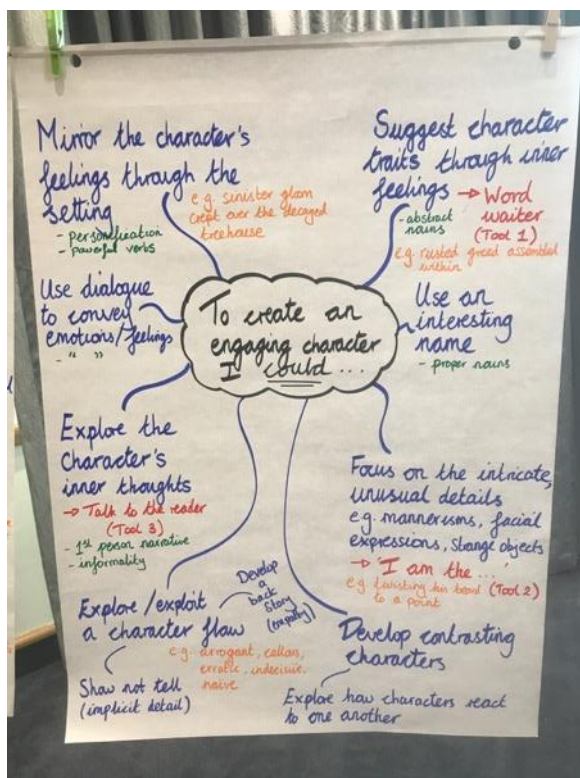 To create an
engaging character
I could ...
Mirror the character's
feelings through the
setting
- personification
- powerful verbs
e.g. sinister gloom
crept over the decayed
treehouse
Suggest character
traits through inner
feelings → Word
waiter
(Tool 1)
- abstract
nouns
e.g. rusted greed assembled
within
Use dialogue
to convey
emotions/feelings
- " "
Use an
interesting
name
- proper nouns
Explore the
character's
inner thoughts
→ Talk to the reader
(Tool 3)
- 1st person narrative
- informality
Focus on the intricate,
unusual details
e.g. mannerisms, facial
expressions, strange objects
→ 'I am the ...'
(Tool 2)
e.g. twisting his beard
to a point
Explore/exploit
a character flaw
Develop
a
back
story
(empathy)
e.g. arrogant, callous,
erratic, indecisive,
naive
Show not tell
(implicit detail)
Develop contrasting
characters
Explore how characters react
to one another